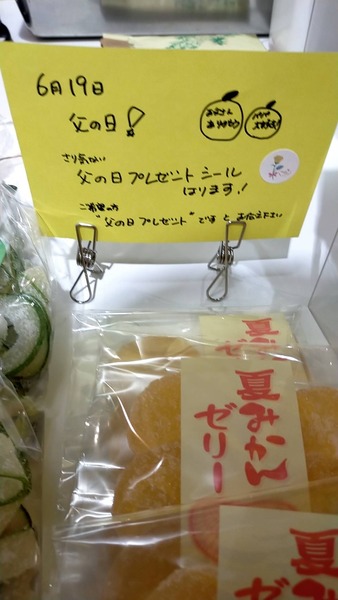 6月19日
父の日!
お父さん
ありがとう
パパ
大好き
さり気ない
父の日プレゼントシール
はります!
ご希望の方
"父の日プレゼント"ですとお伝え下さい
夏
ゼ
夏みかん
ゼリー
夏みかん
ゼ